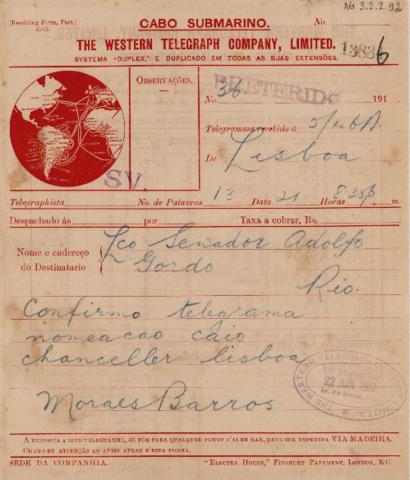 AG 3.2.2.92
(Receiving Form, Port.)
CABO SUBMARINO.
No.
THE WESTERN TELEGRAPH COMPANY, LIMITED.
SYSTEMA "DUPLEX," E DUPLICADO EM TODAS AS SUAS EXTENSÕES.
13836
OBSERVAÇÕES.
PRETERIDO
No. 36 191
Telegramma recebido á 5/46A
De Lisboa
SV.
Telegraphista No. de Palavras 13 Data 21 Horas 8.35P m.
Despachado ás por Taxa a cobrar, Rs.
Nome e endereço do Destinatario
Lco Senador Adolfo
Gordo
Rio
Confirmo telegrama
nomeacao caio
chanceller lisboa
Moraes Barros
THE WESTERN TELEGRAPH COMPANY, LIMITED.
22 JUN
A RESPOSTA A ESTE TELEGRAMMA, SE FÔR PARA QUALQUER PONTO D'ALEM MAR, DEVE SER EXPEDIDA VIA MADEIRA.
CHAMA-SE ATTENÇÃO AO AVISO ATRAZ D'ESTA FORMA.
SÉDE DA COMPANHIA. "ELECTRA HOUSE," FINSBURY PAVEMENT, LONDON, E.C.